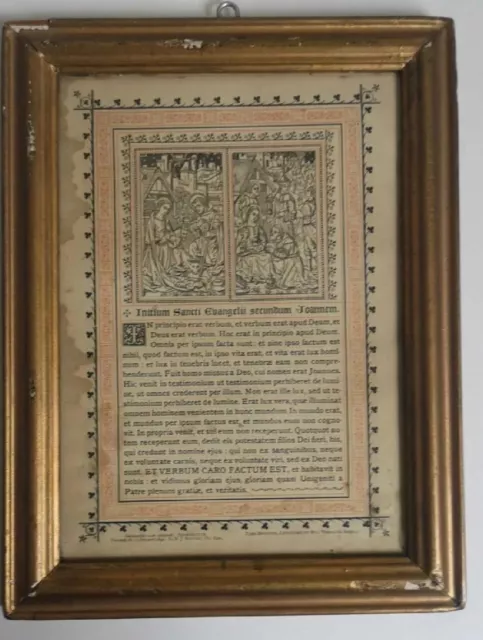 ✠ Initium Sancti Evangelii secundum Joannem.
IN principio erat verbum, et verbum erat apud Deum, et
Deus erat verbum. Hoc erat in principio apud Deum.
Omnia per ipsum facta sunt: et sine ipso factum est
nihil, quod factum est, in ipso vita erat, et vita erat lux homi
num: et lux in tenebris lucet, et tenebræ eam non compre-
henderunt. Fuit homo missus a Deo, cui nomen erat Joannes.
Hic venit in testimonium ut testimonium perhiberet de lumi-
ne, ut omnes crederent per illum. Non erat ille lux, sed ut te-
stimonium perhiberet de lumine. Erat lux vera, quæ illuminat
omnem hominem venientem in hunc mundum. In mundo erat,
et mundus per ipsum factus est, et mundus eum non cogno-
vit. In propria venit, et sui eum non receperunt. Quotquot au-
tem receperunt eum, dedit eis potestatem filios Dei fieri, his,
qui credunt in nomine ejus: qui non ex sanguinibus, neque
ex voluntate carnis, neque ex voluntate viri, sed ex Deo nati
sunt. ET VERBUM CARO FACTUM EST, et habitavit in
nobis: et vidimus gloriam ejus, gloriam quasi Unigeniti a
Patre plenum gratiæ, et veritatis.